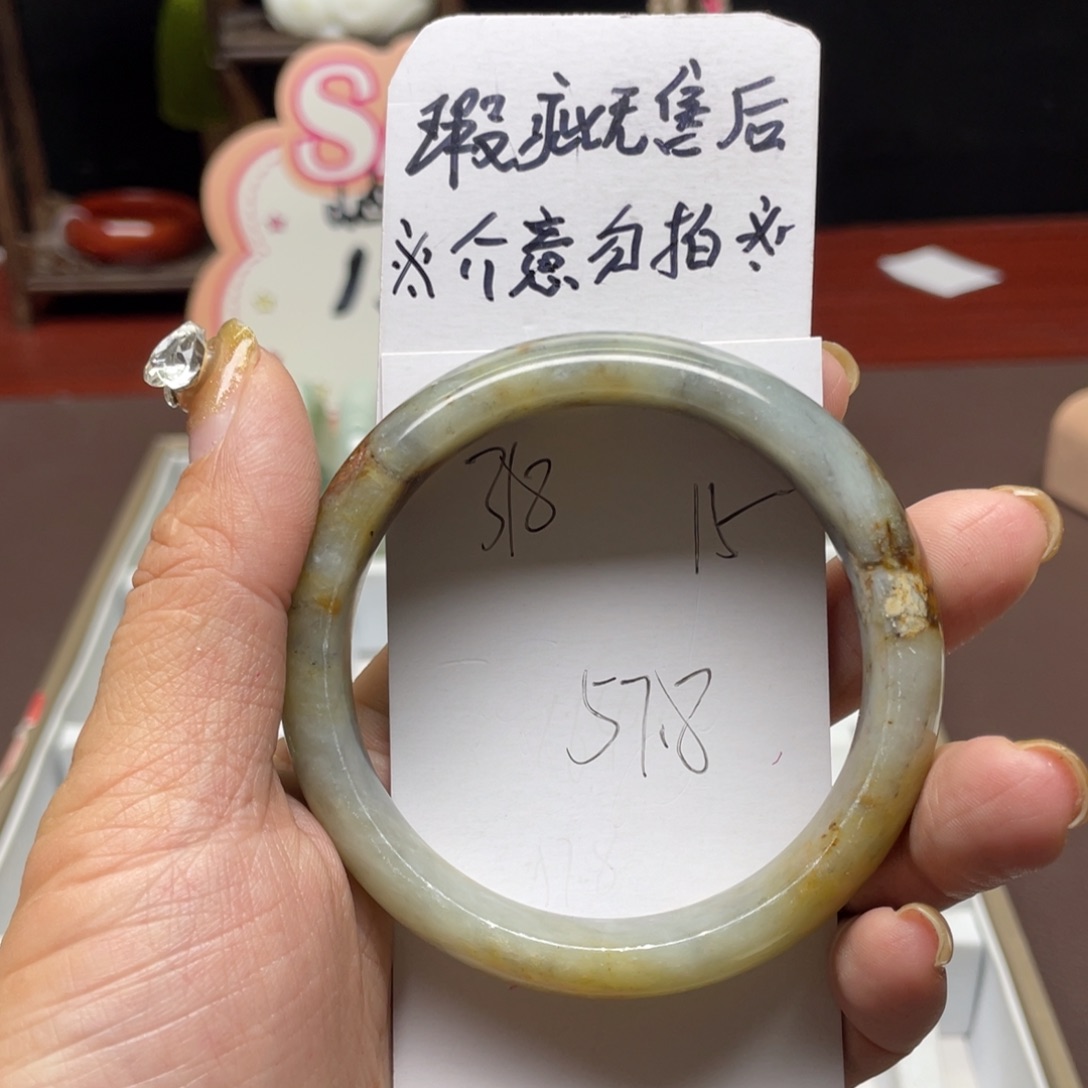 瑕疵无售后
※介意勿拍※
318
15
57.8